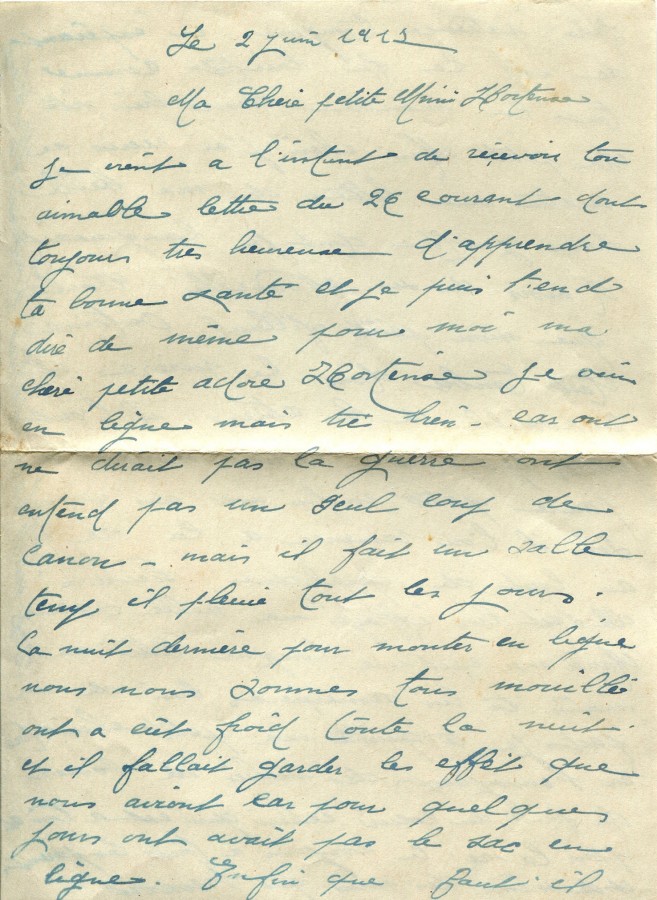 Le 2 juin 1915
Ma Cheré petite Mimi Hortense
Je vient a l'instant de recevoir ton
aimable lettre du 26 courant dont
toujours tres heureuse d'apprendre
ta bonne santé et je puis t'end
diré de même pour moi ma
cheré petite adoré Hortense je suis
en ligne mais tré bien - car ont
ne dirait pas la guerre ont
entend pas un seul coup de
Canon - mais il fait un salle
temp il pleuie tout les jours.
La nuit derniére pour monter en ligne
nous nous sommes tous mouillé
ont a eût froid toute la nuit.
et il fallait garder les effét que
nous aviont car pour quelques
jours ont avait pas le sac en
ligne. Enfin que faut il